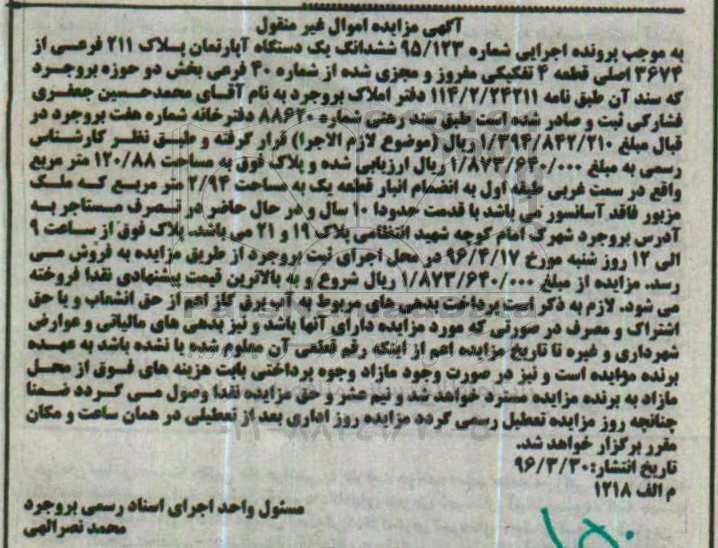 آگهی مزایده اموال غیر منقول
به موجب پرونده اجرایی شماره ۹۵/۱۲۳ ششدانگ یک دستگاه آپارتمان پلاک ۲۱۱ فرعی از
۳۶۷۴ اصلی قطعه ۴ تفکیکی مفروز و مجزی شده از شماره ۴۰ فرعی بخش دو حوزه بروجرد
که سند آن طبق نامه ۱۱۴/۲/۲۴۲۱۱ دفتر املاک بروجرد به نام آقای محمدحسین جعفری
فشارکی ثبت و صادر شده است طبق سند رهنی شماره ۸۸۶۲۰ دفترخانه شماره هفت بروجرد در
قبال مبلغ ۱/۳۹۴/۸۴۲/۲۱۰ ریال (موضوع لازم الاجرا) قرار گرفته و طبق نظر کارشناس
رسمی به مبلغ ۱/۸۷۳/۶۴۰/۰۰۰ ریال ارزیابی شده و پلاک فوق به مساحت ۱۲۰/۸۸ متر مربع
واقع در سمت غربی طبقه اول به انضمام انبار قطعه یک به مساحت ۲/۹۴ متر مربع که ملک
مزبور فاقد آسانسور می باشد با قدمت حدودا ۱۰ سال و در حال حاضر در تصرف مستاجر به
آدرس بروجرد شهرک امام کوچه شهید انتظامی پلاک ۱۹ و ۲۱ می باشد. پلاک فوق از ساعت ۹
الی ۱۲ روز شنبه مورخ ۹۶/۴/۱۷ در محل اجرای ثبت بروجرد از طریق مزایده به فروش می
رسد. مزایده از مبلغ ۱/۸۷۳/۶۴۰/۰۰۰ ریال شروع و به بالاترین قیمت پیشنهادی نقدا فروخته
می شود. لازم به ذکر است پرداخت بدهی های مربوط به آب برق گاز اعم از حق انشعاب و یا حق
اشتراک و مصرف در صورتی که مورد مزایده دارای آنها باشد و نیز بدهی های مالیاتی و عوارض
شهرداری و غیره تا تاریخ مزایده اعم از اینکه رقم قطعی آن معلوم شده یا نشده باشد به عهده
برنده مزایده است و نیز در صورت وجود مازاد وجوه پرداختی بابت هزینه های فوق از محل
مازاد به برنده مزایده مسترد خواهد شد و نیم عشر و حق مزایده نقدا وصول می گردد ضمنا
چنانچه روز مزایده تعطیل رسمی گردد مزایده روز اداری بعد از تعطیلی در همان ساعت و مکان
مقرر برگزار خواهد شد.
تاریخ انتشار: ۹۶/۳/۳۰
م الف ۱۲۱۸
مسئول واحد اجرای اسناد رسمی بروجرد
محمد نصرالهی